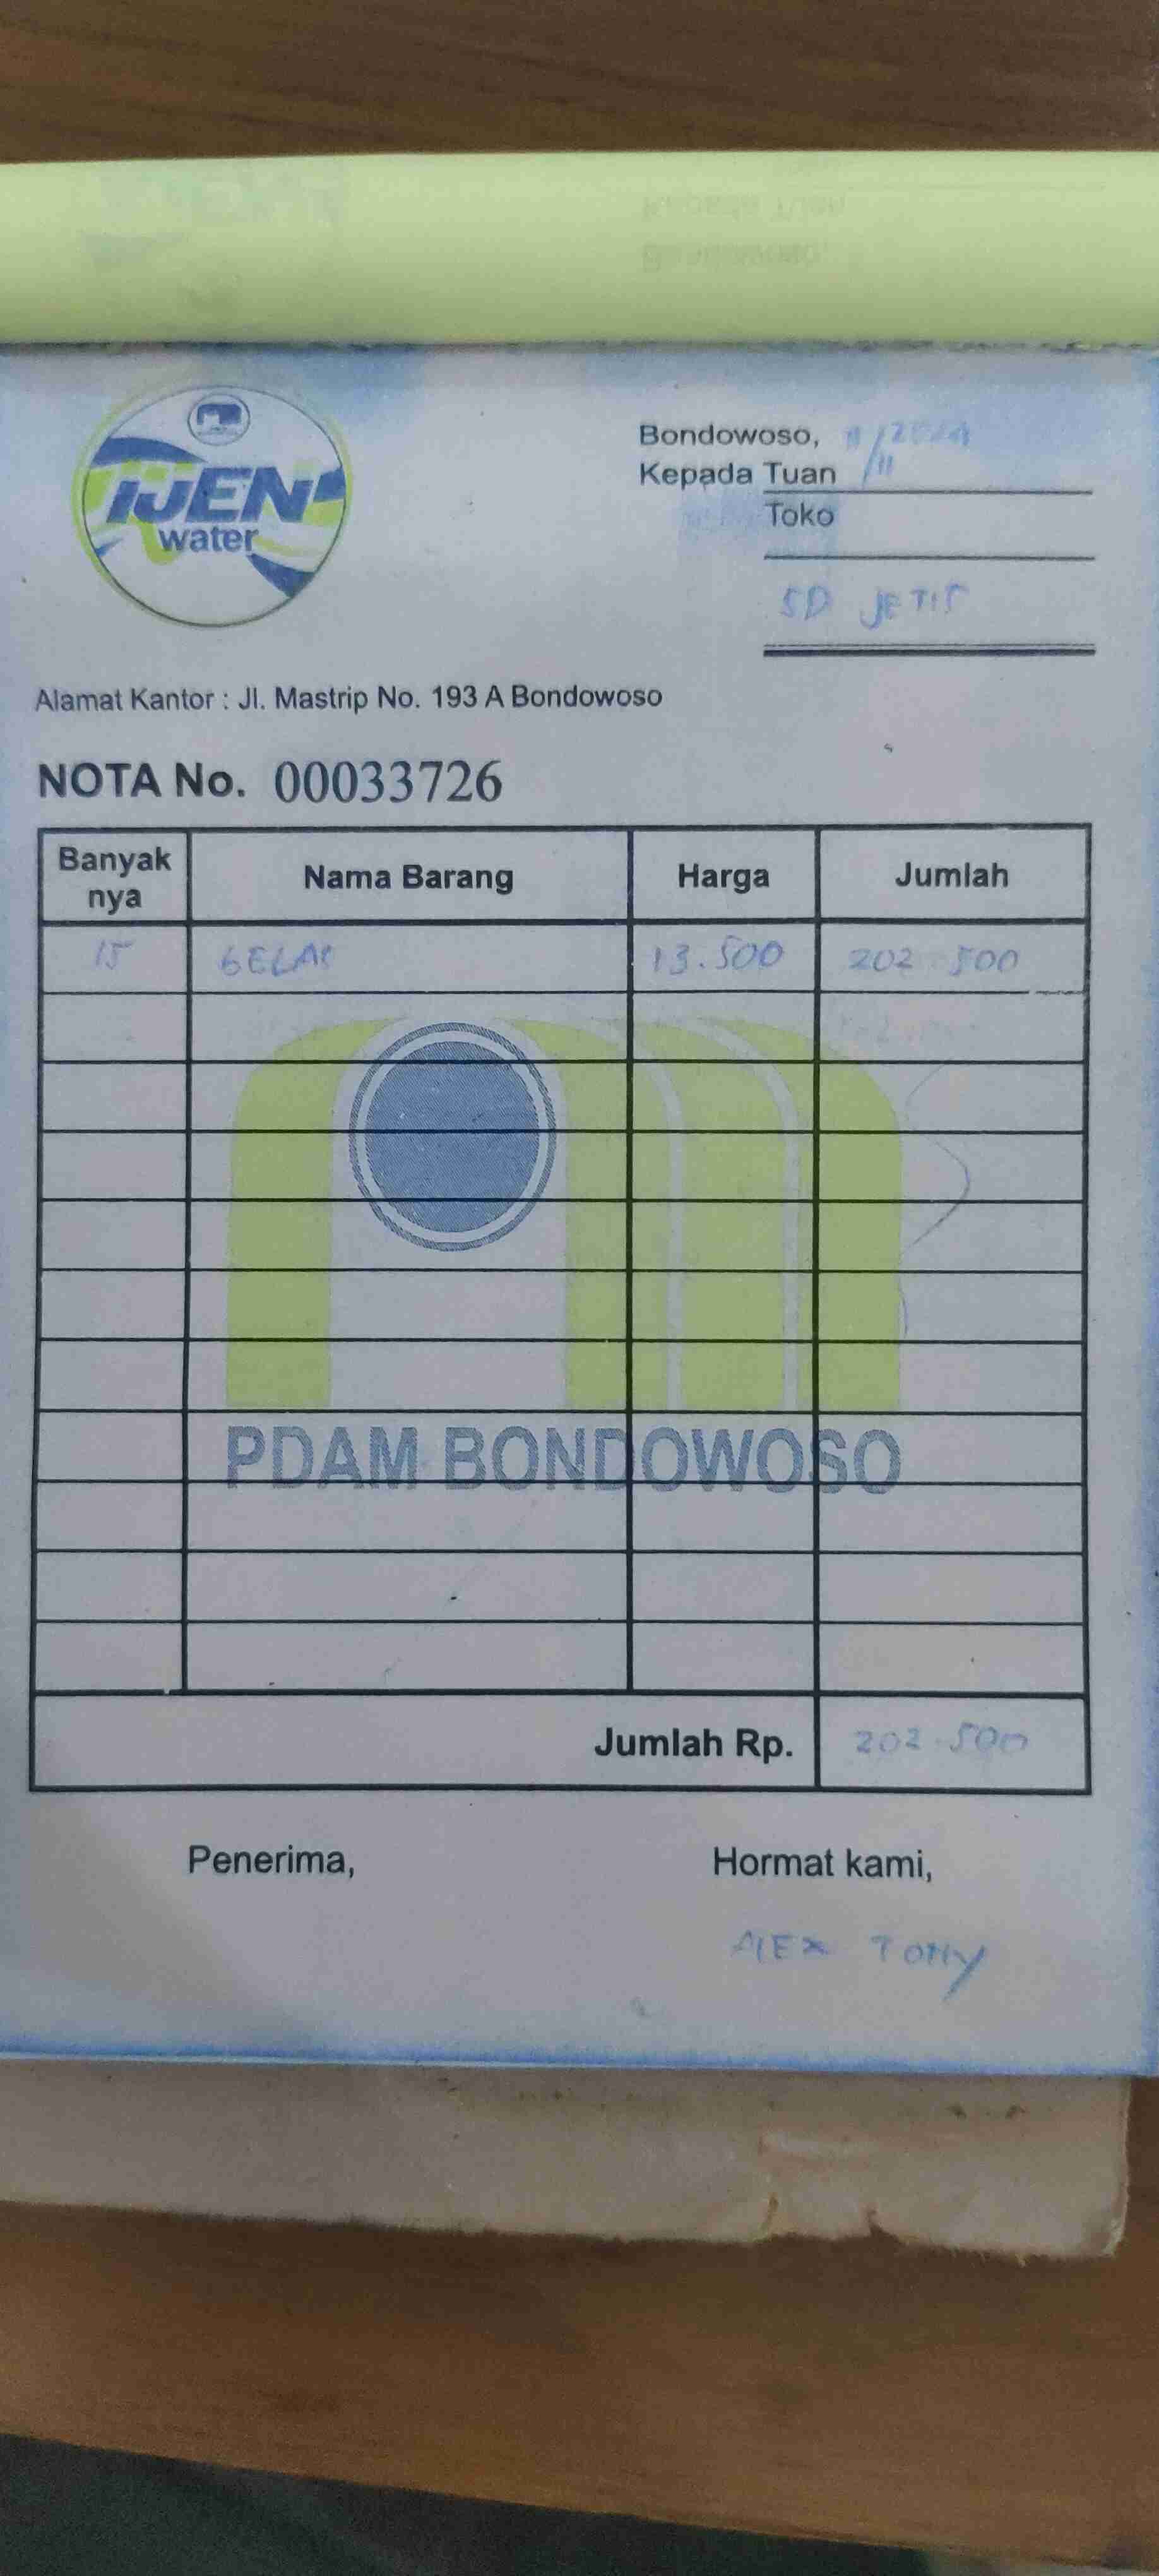 IJEN
water
Bondowoso, 11/11/2024
Kepada Tuan
Toko
SD JETIS
Alamat Kantor : Jl. Mastrip No. 193 A Bondowoso
NOTA No. 00033726
Banyak nya Nama Barang Harga Jumlah
15 GELAS 13.500 202.500
PDAM BONDOWOSO
Jumlah Rp. 202.500
Penerima, Hormat kami,
ALEX TONY